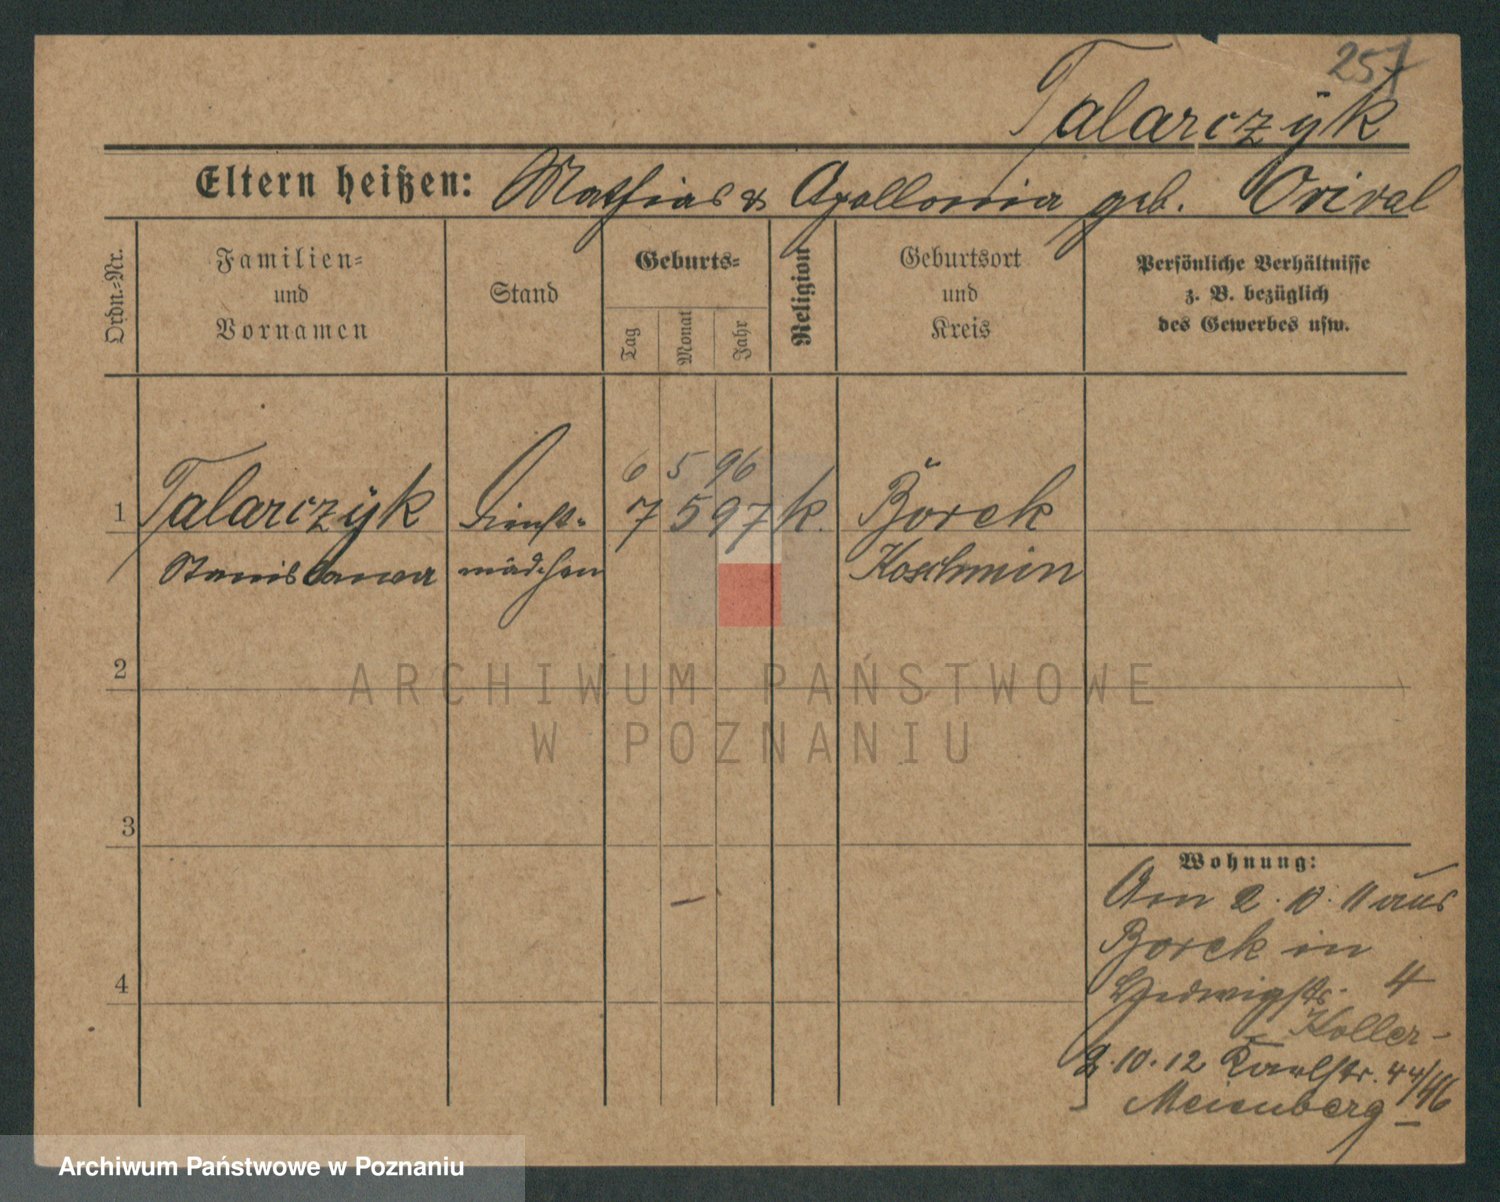 257
Talarczyk
Eltern heißen: Mathias & Apollonia geb. Orival
Ordn.-Nr.
Familien-
und
Vornamen
Stand
Geburts-
Tag
Monat
Jahr
Religion
Geburtsort
und
Kreis
Persönliche Verhältnisse
z. B. bezüglich
des Gewerbes usw.
6 5 96
1 Talarczyk Dienst- 7 5 97 k. Borek
Stanislawa mädchen Koschmin
2
ARCHIWUM PAŃSTWOWE
W POZNANIU
3
Wohnung:
Am 2.10.11 aus
Borek in
4 Hedwigstr. 4
Koller-
2.10.12 Karlstr. 44/46
Meienberg
Archiwum Państwowe w Poznaniu